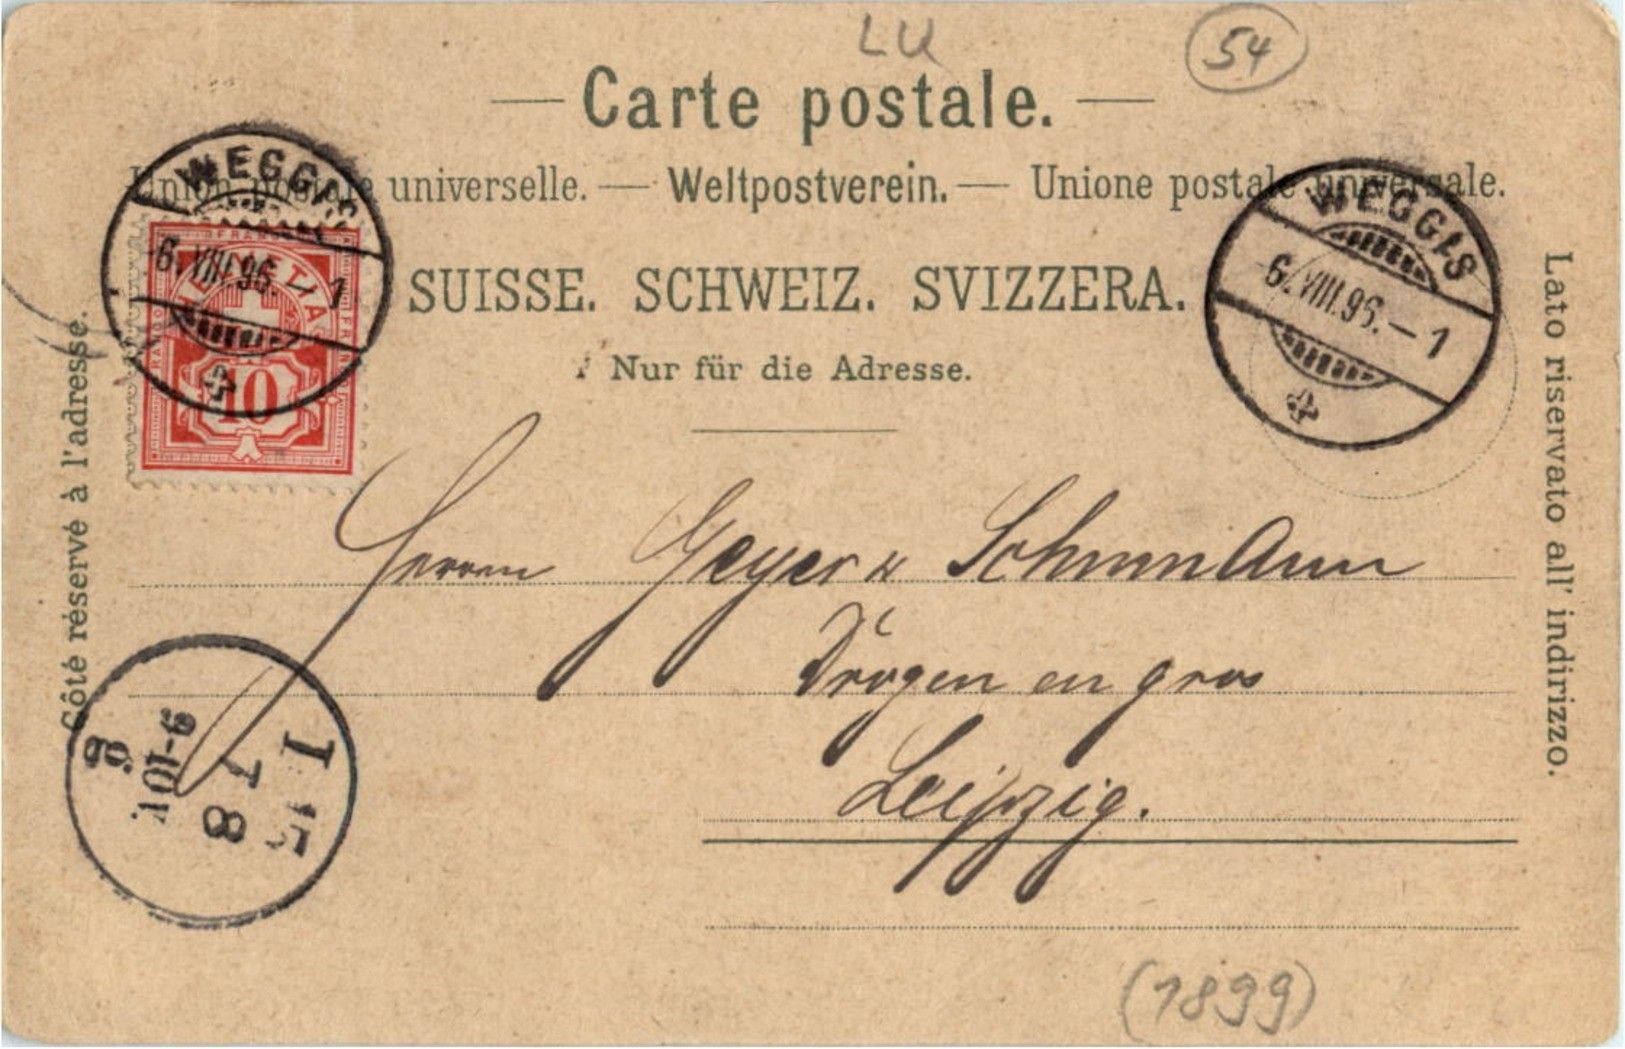 LU
54
— Carte postale. —
Union postale universelle. — Weltpostverein. — Unione postale universale.
WEGGIS
6.VIII.96.–1
WEGGIS
6.VIII.96.–1
HELVETIA
FRANCO
10
SUISSE. SCHWEIZ. SVIZZERA.
Nur für die Adresse.
Côté réservé à l'adresse.
Lato riservato all' indirizzo.
Herren Geyer & Schumann
Drogen en gros
Leipzig.
9-10V.
8
(1899)